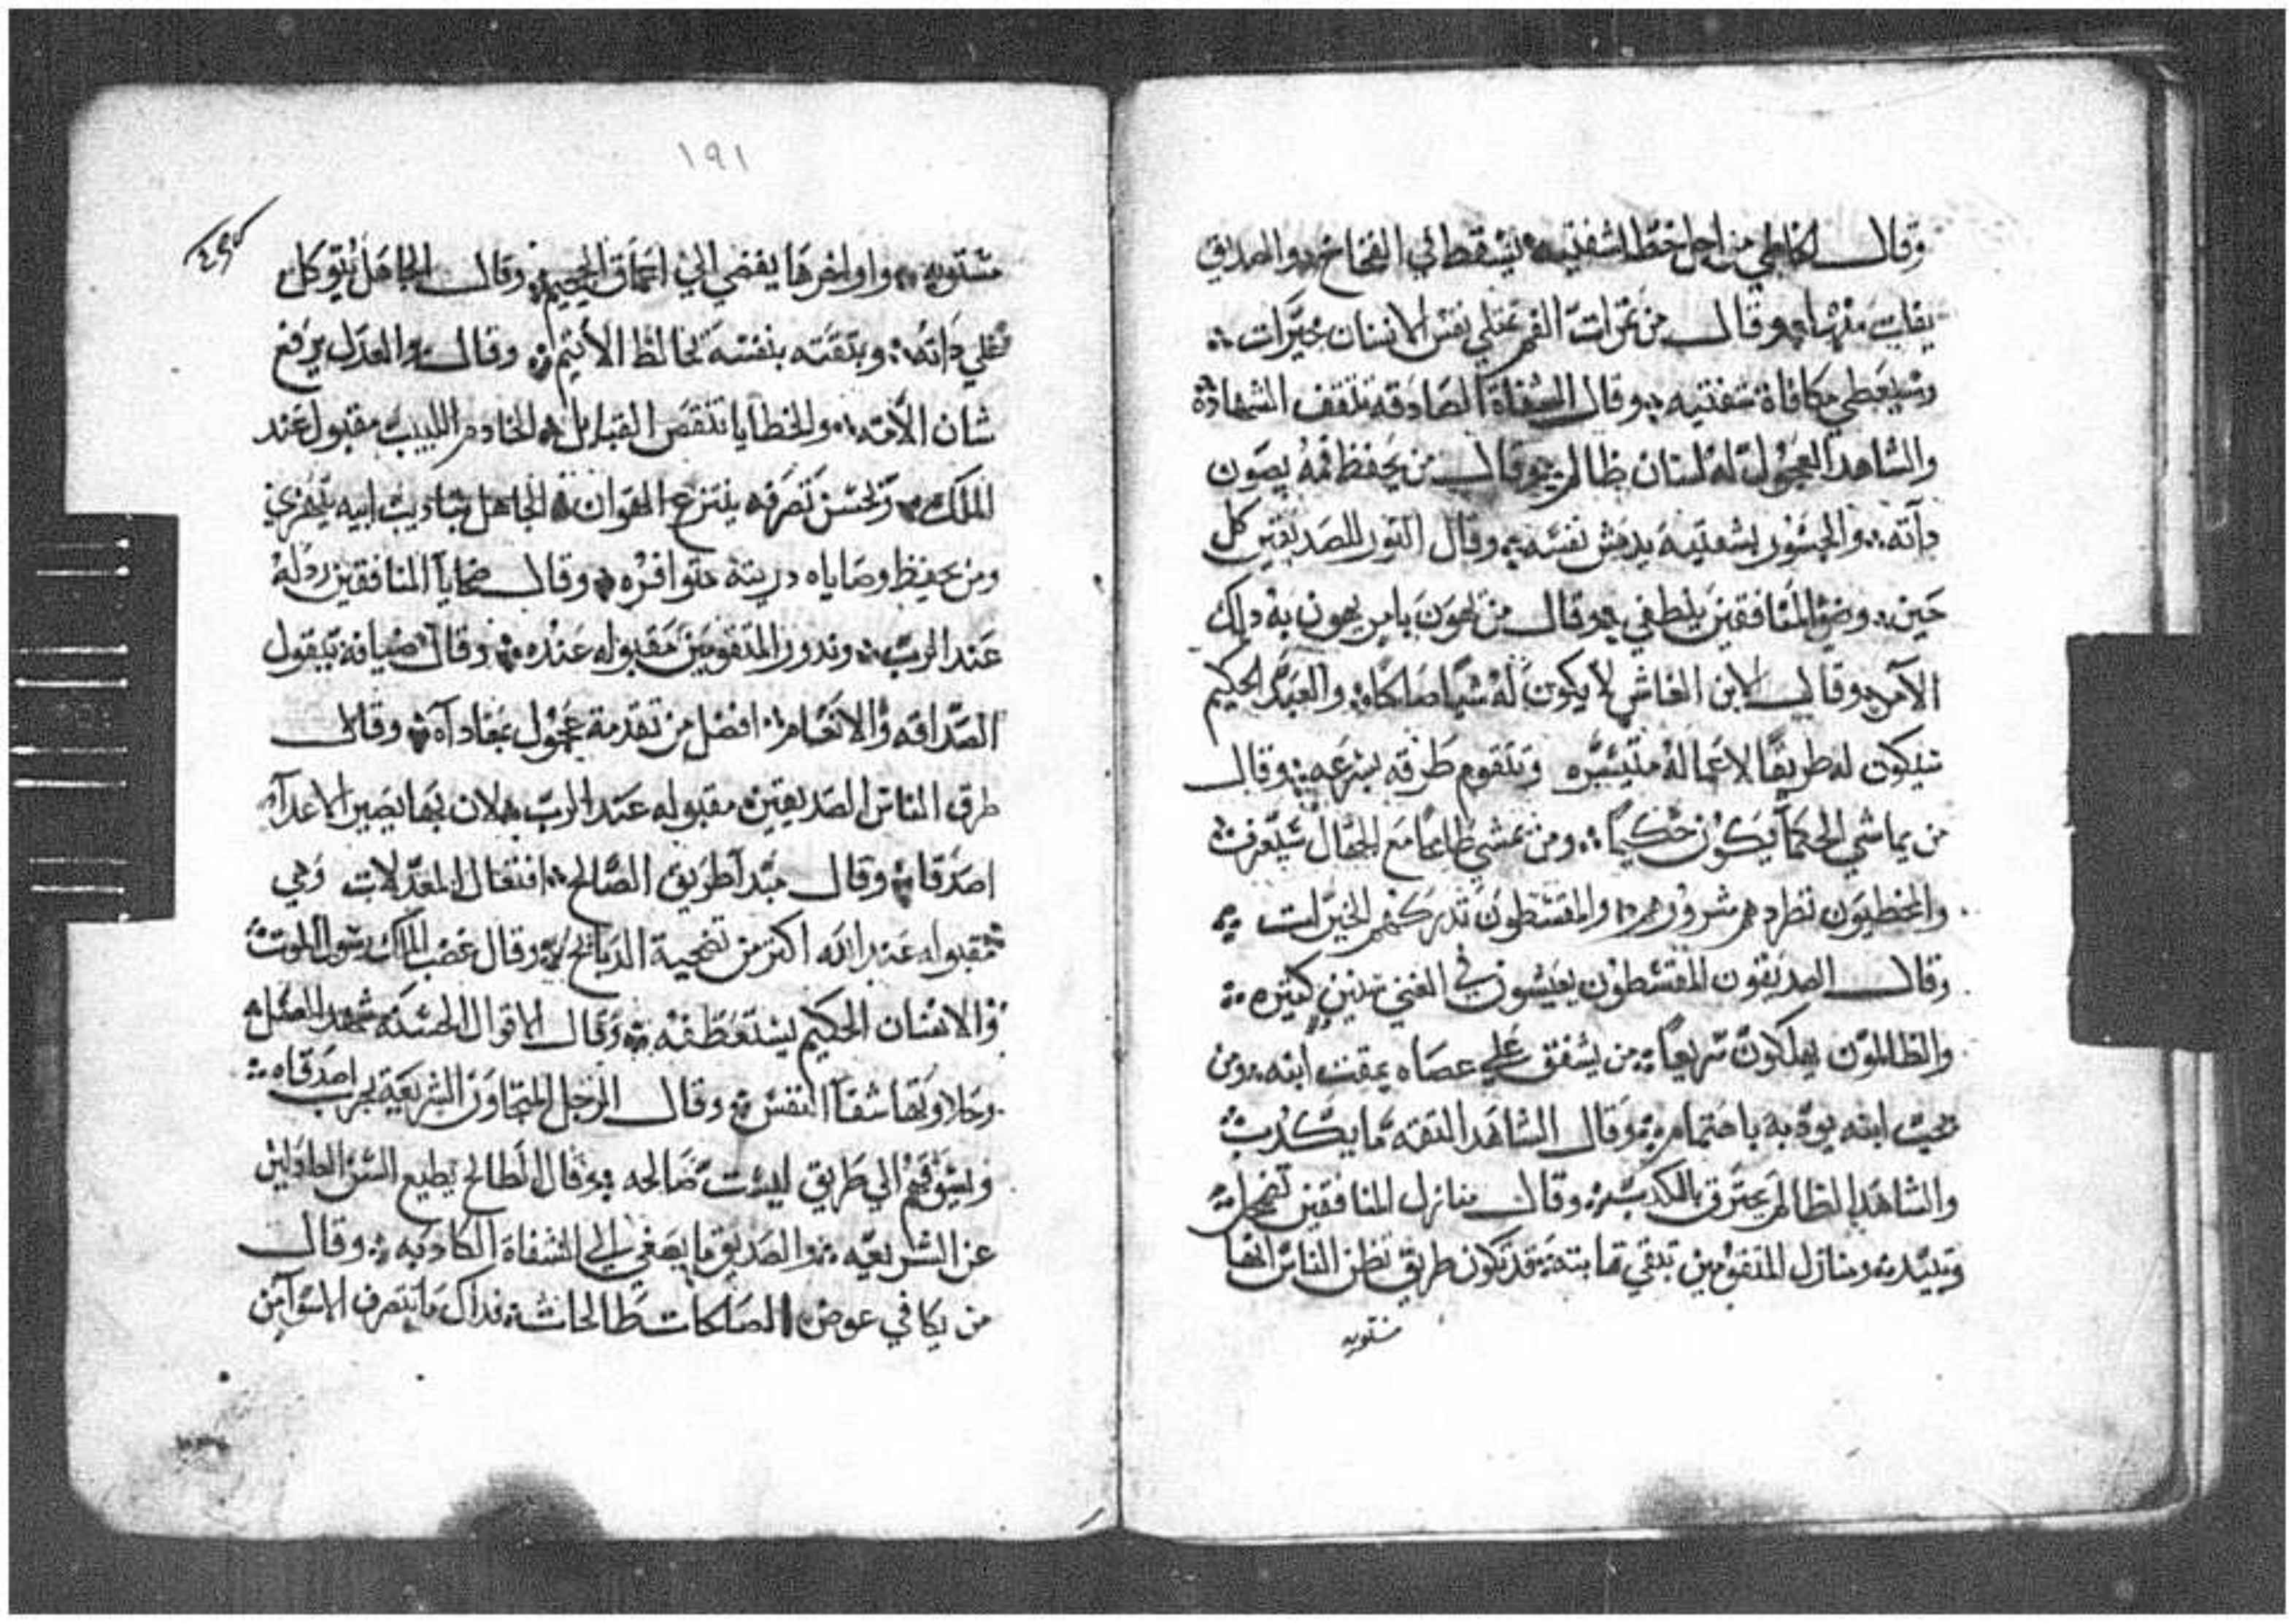 وقال الخاطي من اجل خطا شفتيه يسقط في الفخاخ والصديق
يفلت منها وقال من ثمرات الفم تمتلي نفس الانسان خيرات
وسيعطي مكافاة شفتيه وقال الشفاة الصادقه تثقف الشهادة
والشاهد العجول له لسان ظالم وقال من يحفظ فمه يصون
ذاته والجسور بشفتيه يدهش نفسه وقال النور للصديقين كل
حين وضو المنافقين ينطفي وقال من يهون بامر يهون به ذلك
الامر وقال الابن الغاش لا يكون له شيا صالحا والعبد الحكيم
ستكون له طريقا لاعماله متيسره وتتقوم طرقه بسرعه وقال
من يماشي الحكما يكون حكيما ومن يمشي طايعا مع الجهال سيعرف
والمخطيون تطردهم شرورهم والمقسطون تدركهم الخيرات
وقال الصديقون المقسطون يعيشون في الغني سنين كثيره
والظالمون يهلكون سريعا من يشفق علي عصاه يمقت ابنه ومن
يحب ابنه يودبه باهتمام وقال الشاهد الثقه ما يكذب
والشاهد الظالم يحترق بالكذب وقال منازل المنافقين تضمحل
وتبيد ومنازل المتقومين تبقي ثابته قد تكون طريق تظن الناس انها
مستويه
١٩١
مستويه واواخرها يفضي الي اعماق الجحيم وقال الجاهل يتوكل
علي ذاته وبثقته بنفسه يخالط الأثيم وقال والعدل يرفع
شان الأمة والخطايا تنقص القبايل الخادم اللبيب مقبول عند
الملك وبحسن تصرفه ينتزع الهوان الجاهل بتاديب ابيه
ومن يحفظ وصاياه وقال ضحايا المنافقين رذله
عند الرب ونذور المتقومين مقبوله عنده وقال ضيافة بقول
الصداقه والانعام افضل من تقدمة عجول بمعاداه وقال
طرق الناس الصديقين مقبوله عند الرب لان بها يصير الاعدا
اصدقا وقال مبدا طريق الصالح افتعال المعدلات وهي
مقبوله عند الله اكثر من تضحية الدبايح وقال غضب الملك رسول الموت
والانسان الحكيم يستعطفه وقال الاقوال الحسنة شهد العسل
وحلاوتها شفا النفس وقال الرجل المتجاوز الشريعة يجرب اصدقاه
ويسوقهم الي طريق ليست صالحه وقال الطالح يطيع السن العادلين
عن الشريعه والصديق ما يصغي الي الشفاة الكاذبه وقال
من يكافي عوض الصالحات طالحات فذاك ما تنصرف الاسوا من